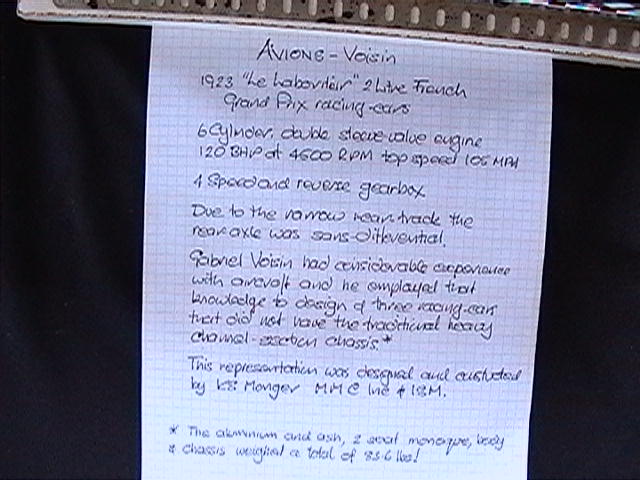 AVIONS - Voisin
1923 "Le Laboratoir" 2 Litre French
Grand Prix racing-cars
6 Cylinder, double sleeve-valve engine
120 BHP at 4600 RPM top speed 106 MPH
4 Speed and reverse gearbox
Due to the narrow rear track the
rear axle was sans-differential.
Gabriel Voisin had considerable experience
with aircraft and he employed that
knowledge to design d three racing-cars
that did not have the traditional heavy
channel-section chassis.*
This representation was designed and constucted
by Monger MMC Inc
* The aluminium and ash, 2 seat monoque, body
& chassis weighed a total of lbs!